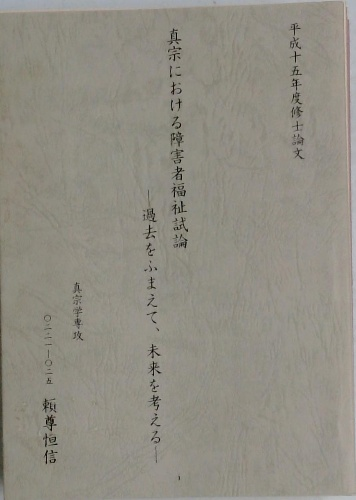 平成十五年度修士論文
真宗における障害者福祉試論
―過去をふまえて、未来を考える―
真宗学専攻
〇二二一―〇二五 頼尊恒信
1